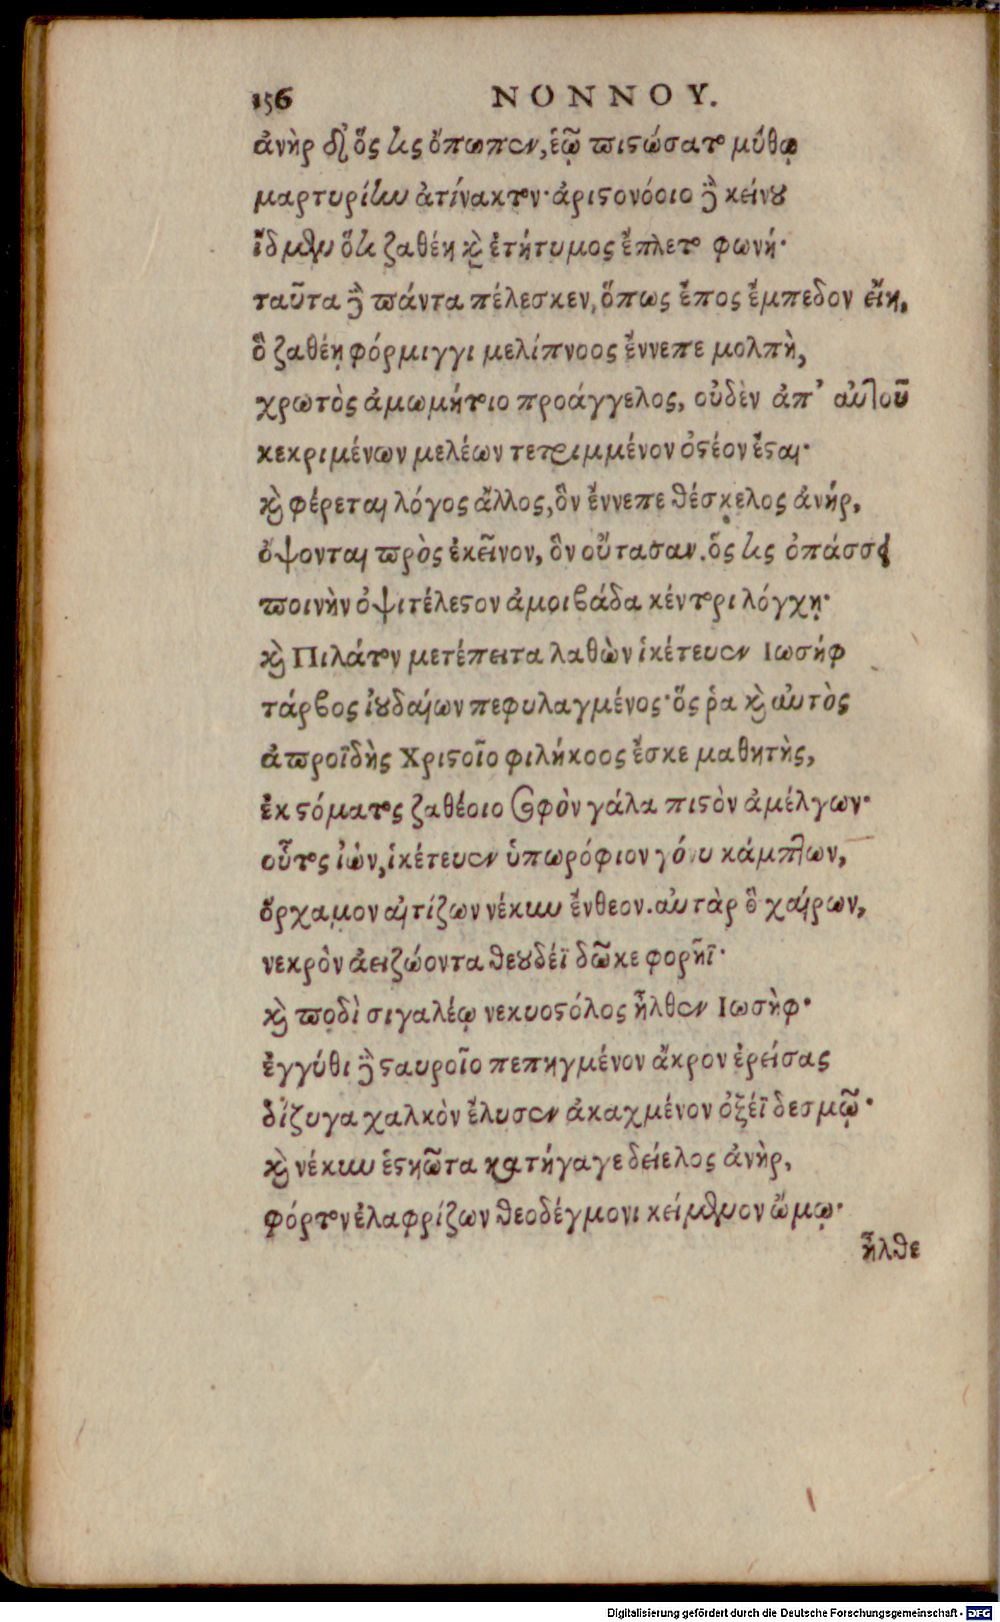 156 ΝΟΝΝΟΥ.
ἀνὴρ δ' ὅς τις ὄπωπεν, ἑῷ πιςώσατο μύθῳ
μαρτυρίην ἀτίνακτον· ἀριςονόοιο δὲ κείνου
ἴδμεν ὅτι ζαθέη καὶ ἐτήτυμος ἔπλετο φωνή·
ταῦτα δὲ πάντα πέλεσκεν, ὅπως ἔπος ἔμπεδον εἴη,
ὃ ζαθέῃ φόρμιγγι μελίπνοος ἔννεπε μολπὴ,
χρωτὸς ἀμωμήτοιο προάγγελος, οὐδὲν ἀπ' αὐτοῦ
κεκριμένων μελέων τετριμμένον ὀςέον ἔςαι·
καὶ φέρεται λόγος ἄλλος, ὃν ἔννεπε θέσκελος ἀνήρ,
ὄψονται πρὸς ἐκεῖνον, ὃν οὔτασαν. ὅς τις ὀπάσσει
ποινὴν ὀψιτέλεςον ἀμοιβάδα κέντορι λόγχῃ·
καὶ Πιλάτον μετέπειτα λαθὼν ἱκέτευεν Ιωσήφ
τάρβος ἰουδαίων πεφυλαγμένος· ὅς ῥα καὶ αὐτὸς
ἀπροϊδὴς Χριςοῖο φιλήκοος ἔσκε μαθητὴς,
ἐκ ςόματος ζαθέοιο σοφὸν γάλα πιςὸν ἀμέλγων·
οὗτος ἰὼν, ἱκέτευεν ὑπωρόφιον γόνυ κάμπτων,
ὄρχαμον αἰτίζων νέκυν ἔνθεον. αὐτὰρ ὃ χαίρων,
νεκρὸν ἀειζώοντα θεουδέϊ δῶκε φορῆϊ·
καὶ ποδὶ σιγαλέῳ νεκυοςόλος ἦλθεν Ιωσὴφ·
ἐγγύθι δὲ ςαυροῖο πεπηγμένον ἄκρον ἐρείσας
δίζυγα χαλκὸν ἔλυσεν ἀκαχμένον ὀξέϊ δεσμῷ·
καὶ νέκυν ἑςηῶτα κατήγαγε δείελος ἀνὴρ,
φόρτον ἐλαφρίζων θεοδέγμονι κείμενον ὤμῳ·
ἦλθε
Digitalisierung gefördert durch die Deutsche Forschungsgemeinschaft - DFG